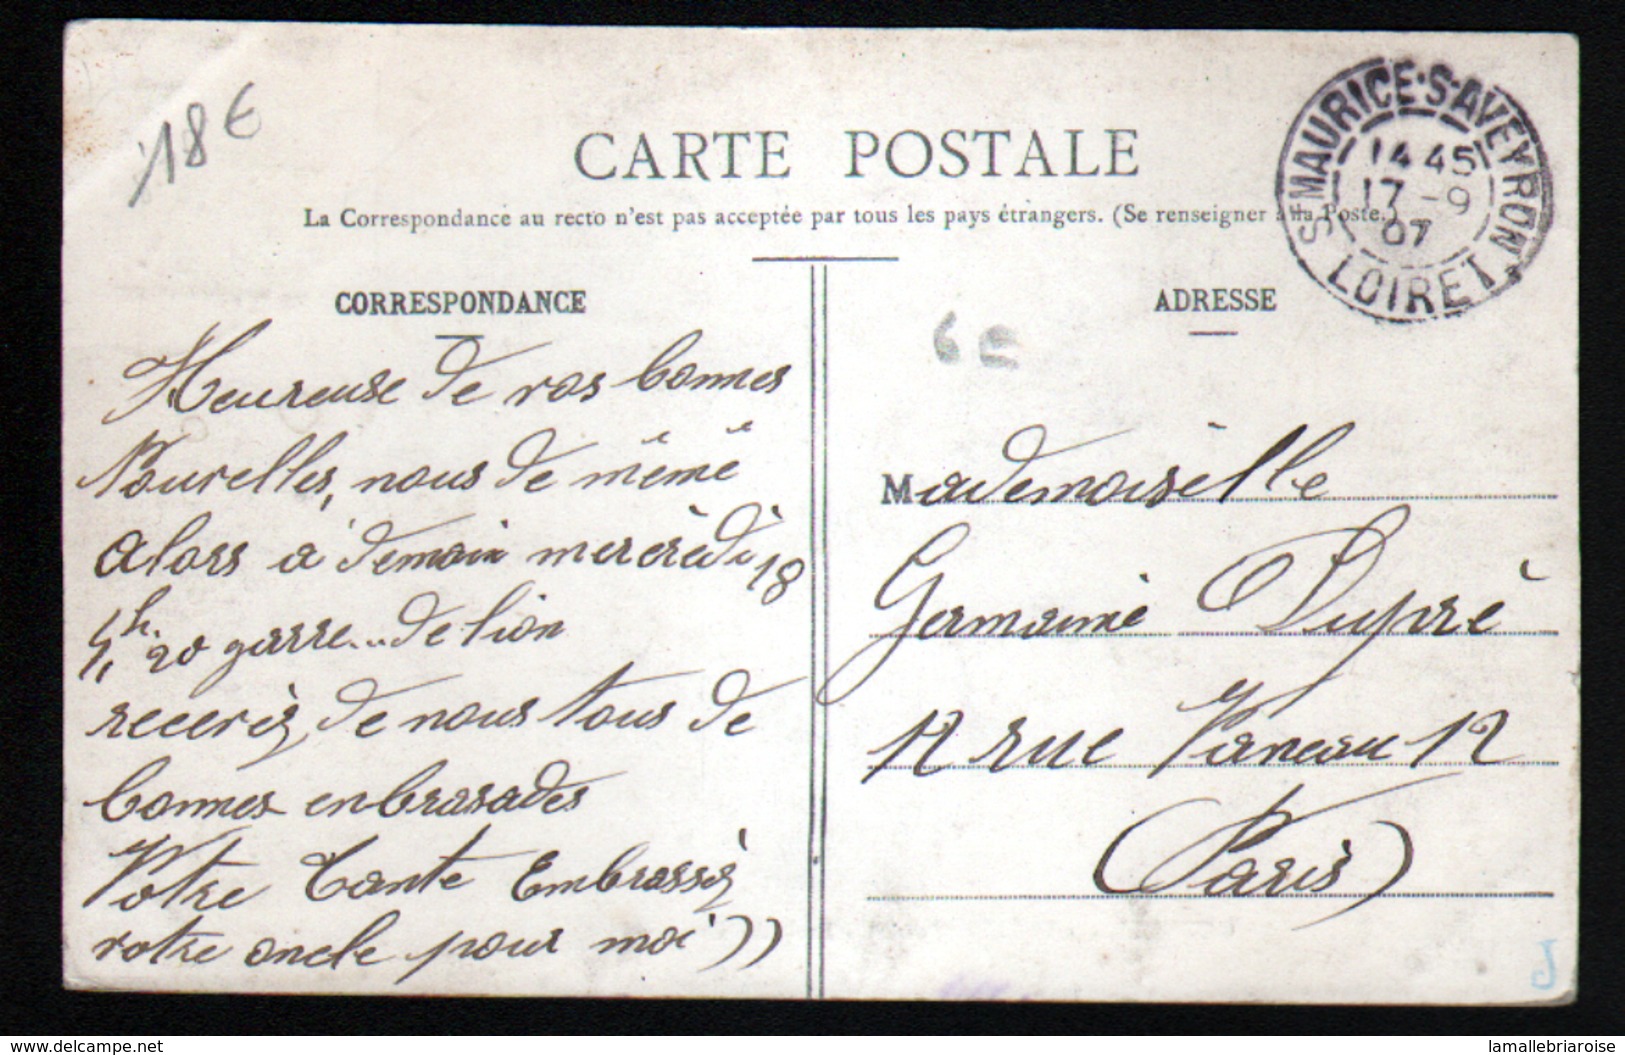 18€
CARTE POSTALE
La Correspondance au recto n'est pas acceptée par tous les pays étrangers. (Se renseigner à la Poste.)
S MAURICE·S·AVEYRON
14 45
17 -9
07
LOIRET
CORRESPONDANCE
Heureuse de vos bonnes
Nouvelles, nous de même
alors a demain mercrèdi 18
4h. 20 garre... de lion
recevéz de nous tous de
bonnes enbrasades
Votre Tante Embrasséz
votre oncle pour moi ))
ADRESSE
Mademoiselle
Germaine Dupré
12 rue Vaneau 12
(Paris)
J
www.delcampe.net
lamallebriaroise